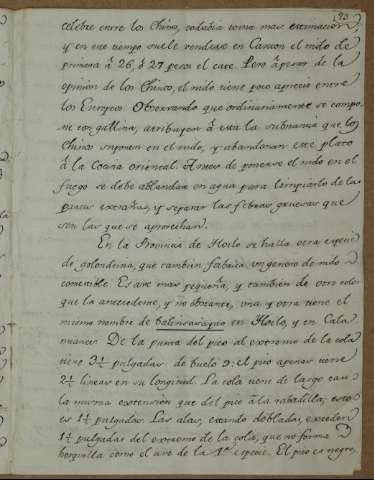 90
celebre entre los Chinos, todabia tiene mas estimacion,
y en ese tiempo suele venderse en Canton el nido de
primera á 26, ó 27 pesos el cate. Pero á pesar de la
opinion de los Chinos, el nido tiene poco aprecio entre
los Europeos. Observando que ordinariamente se compo-
ne con gallina, atribuyen á esta la substancia que los
Chinos suponen en el nido, y abandonan este plato
á la cocina oriental. Antes de ponerse el nido en el
fuego se debe ablandar en agua para limpiarlo de las
pajas extrañas, y separar las fibras gruesas que
son las que se aprovechan.
En la Provincia de Yloilo se halla otra especie
de golondrina, que tambien fabrica un genero de nido
comestible. Es ave mas pequeña, y tambien de otro color
que la antecedente, y no obstante, una y otra tiene el
mismo nombre de balinsasayao en Yloilo, y en Cala-
mianes. De la punta del pico al extremo de la cola
tiene 3½ pulgadas de buelo 9: el pico apenas tiene
2½ lineas en su longitud. La cola tiene de largo casi
la misma extencion que del pico á la rabadilla; esto
es 1½ pulgadas. Las alas, estando dobladas, exceden
1½ pulgadas del extremo de la cola, que no forma
horquilla como el ave de la 1ª especie. El pico es negro,